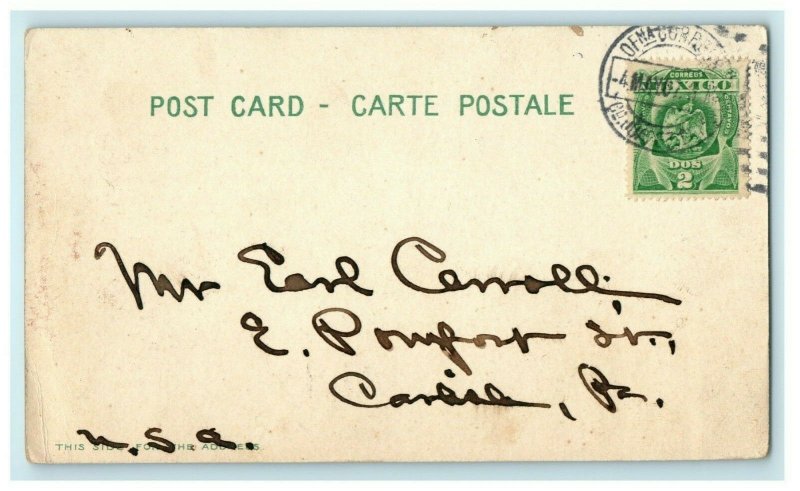 POST CARD - CARTE POSTALE
CORREOS
MEXICO
DOS
2
Mr Earl Carroll,
E. Pomfort St.,
Carlisle, Pa.
U.S.A.
THIS SIDE FOR THE ADDRESS.